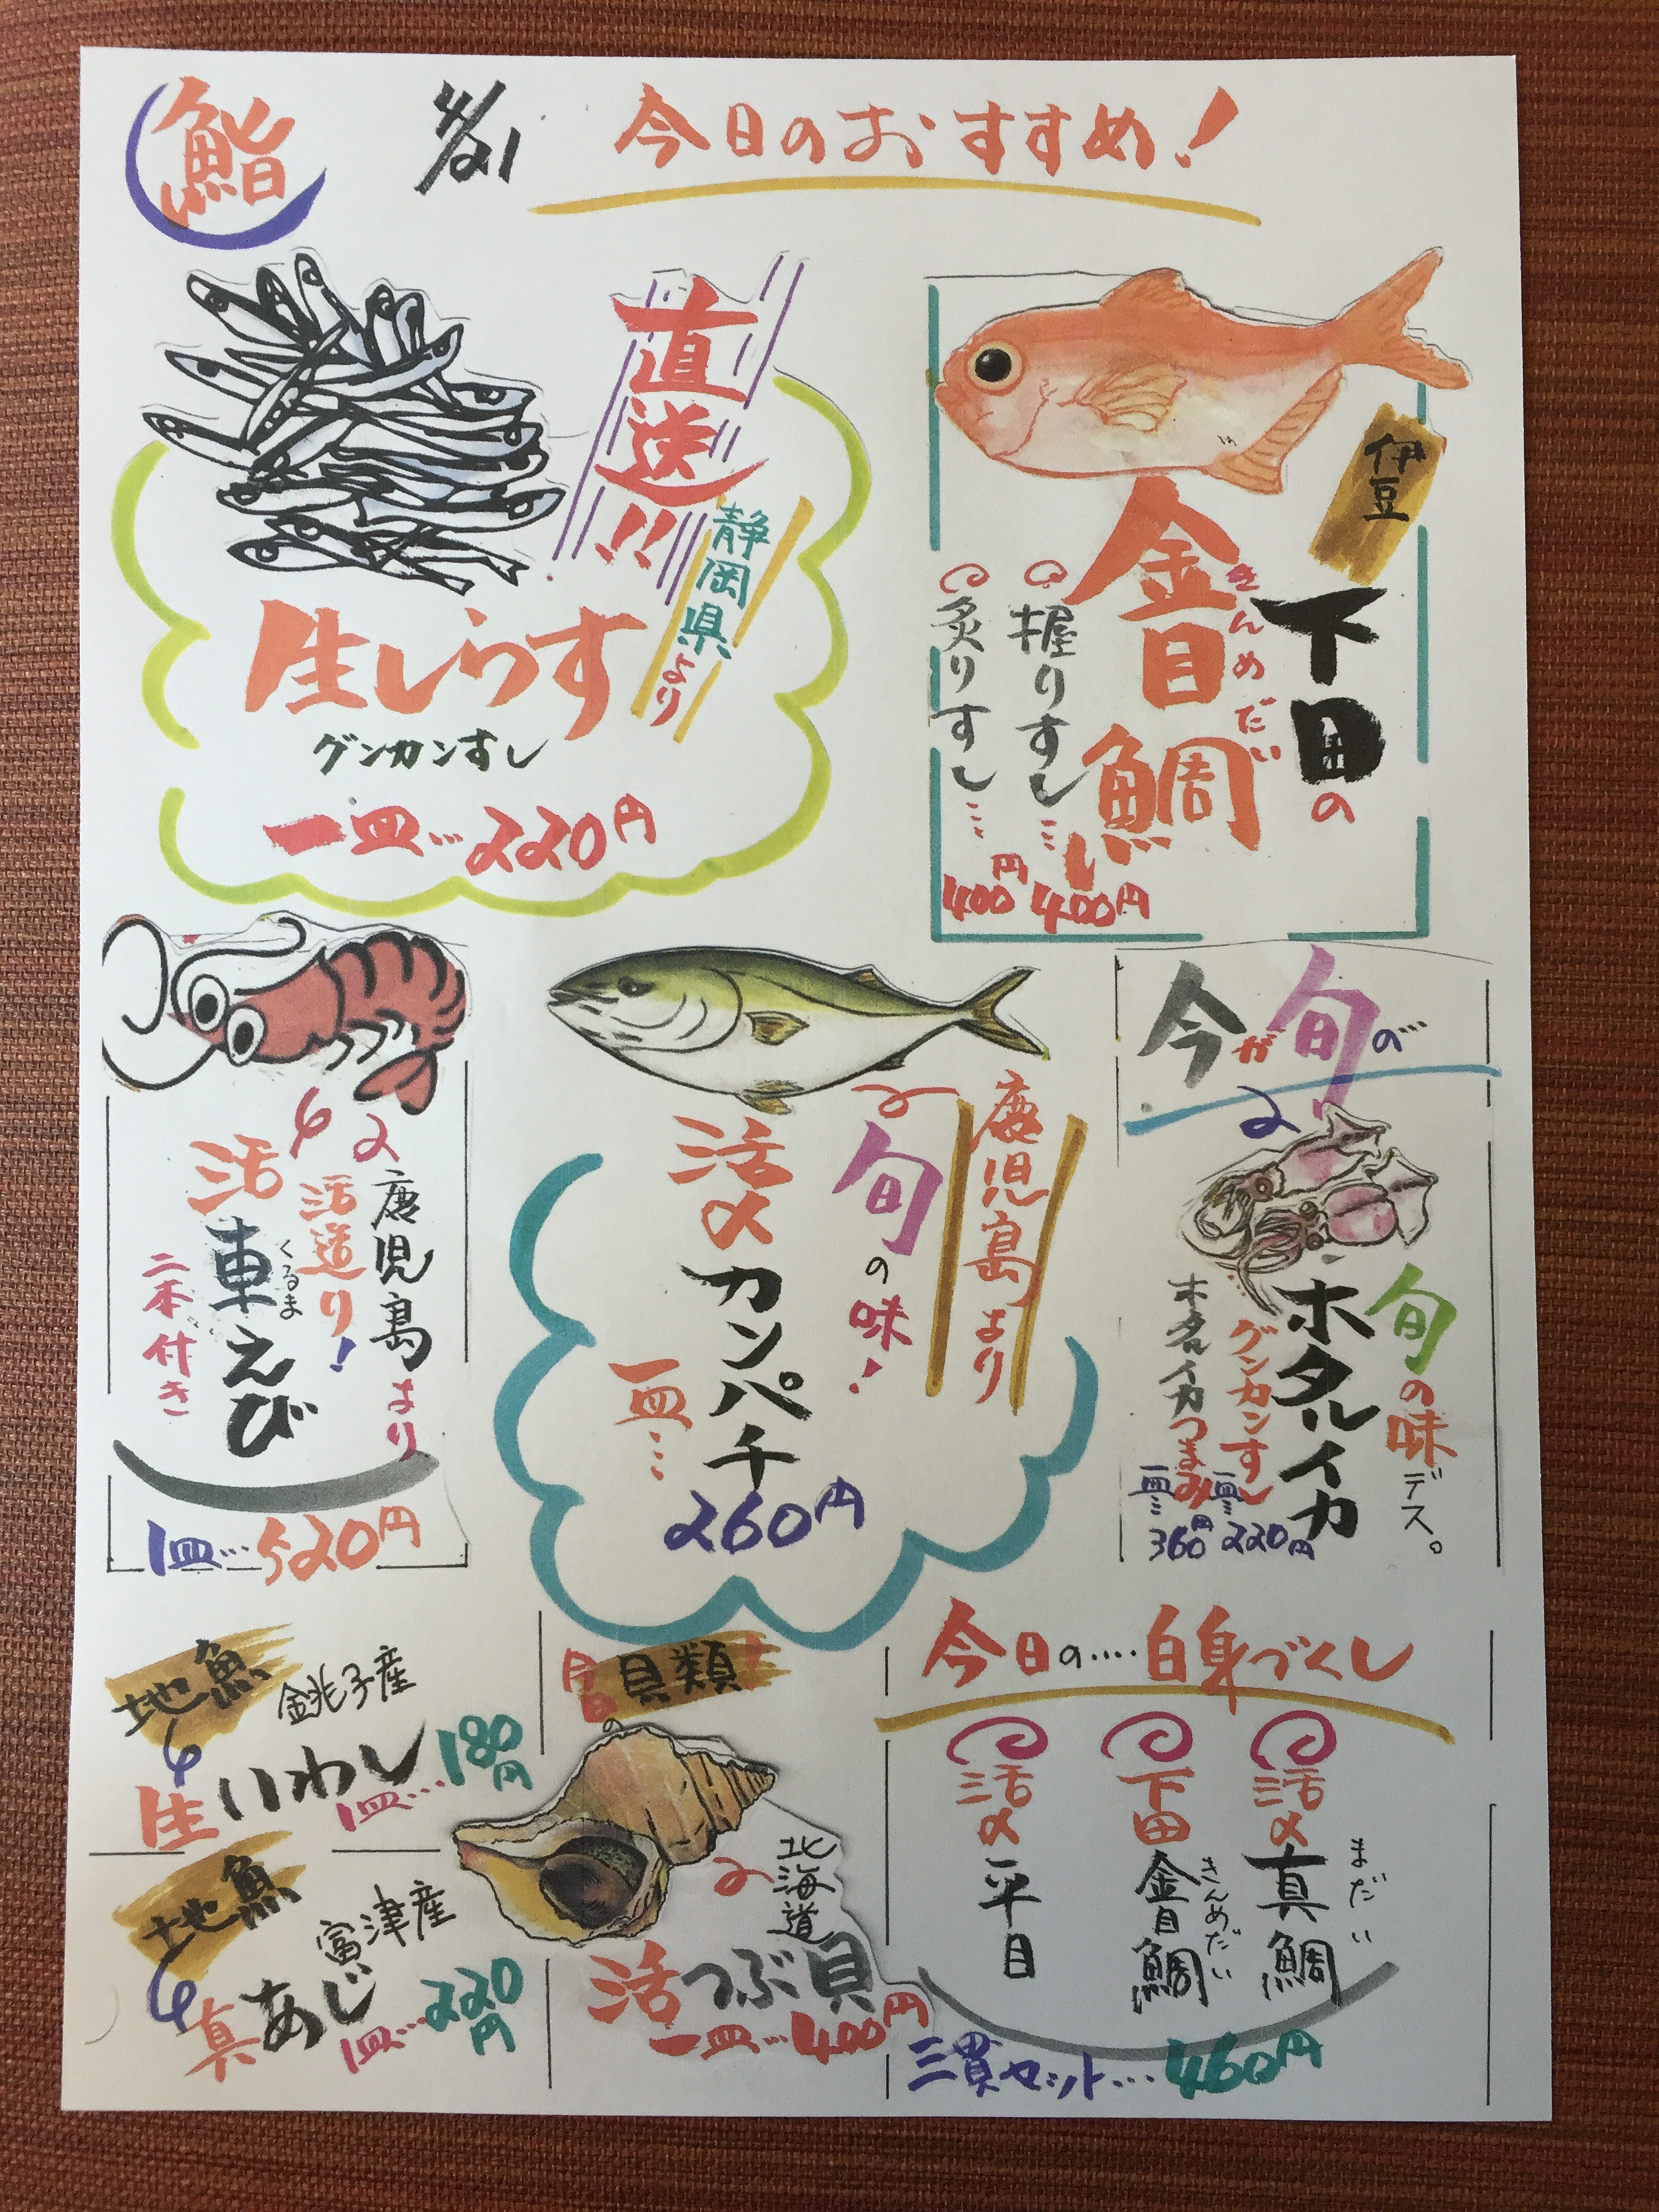 鮨
4/21
今日のおすすめ!
直送!!
静岡県より
生しらす
グンカンすし
一皿…220円
伊豆
下田の
金目鯛
きんめだい
握りすし…400円
炙りすし…400円
鹿児島より
活造り!
活車えび
くるま
二本付き
1皿…520円
鹿児島より
旬の味!
活〆カンパチ
一皿…
260円
今が旬の
旬の味デス。
ホタルイカ
グンカンすし
一皿…220円
ホタルイカつまみ
一皿…360円
地魚
銚子産
生いわし
1皿…180円
地魚
富津産
真あじ
1皿…220円
今日の貝類!
北海道
活つぶ貝
一皿…400円
今日の…‥白身づくし
活〆真鯛
まだい
下田金目鯛
きんめだい
活〆平目
三貫セット…460円